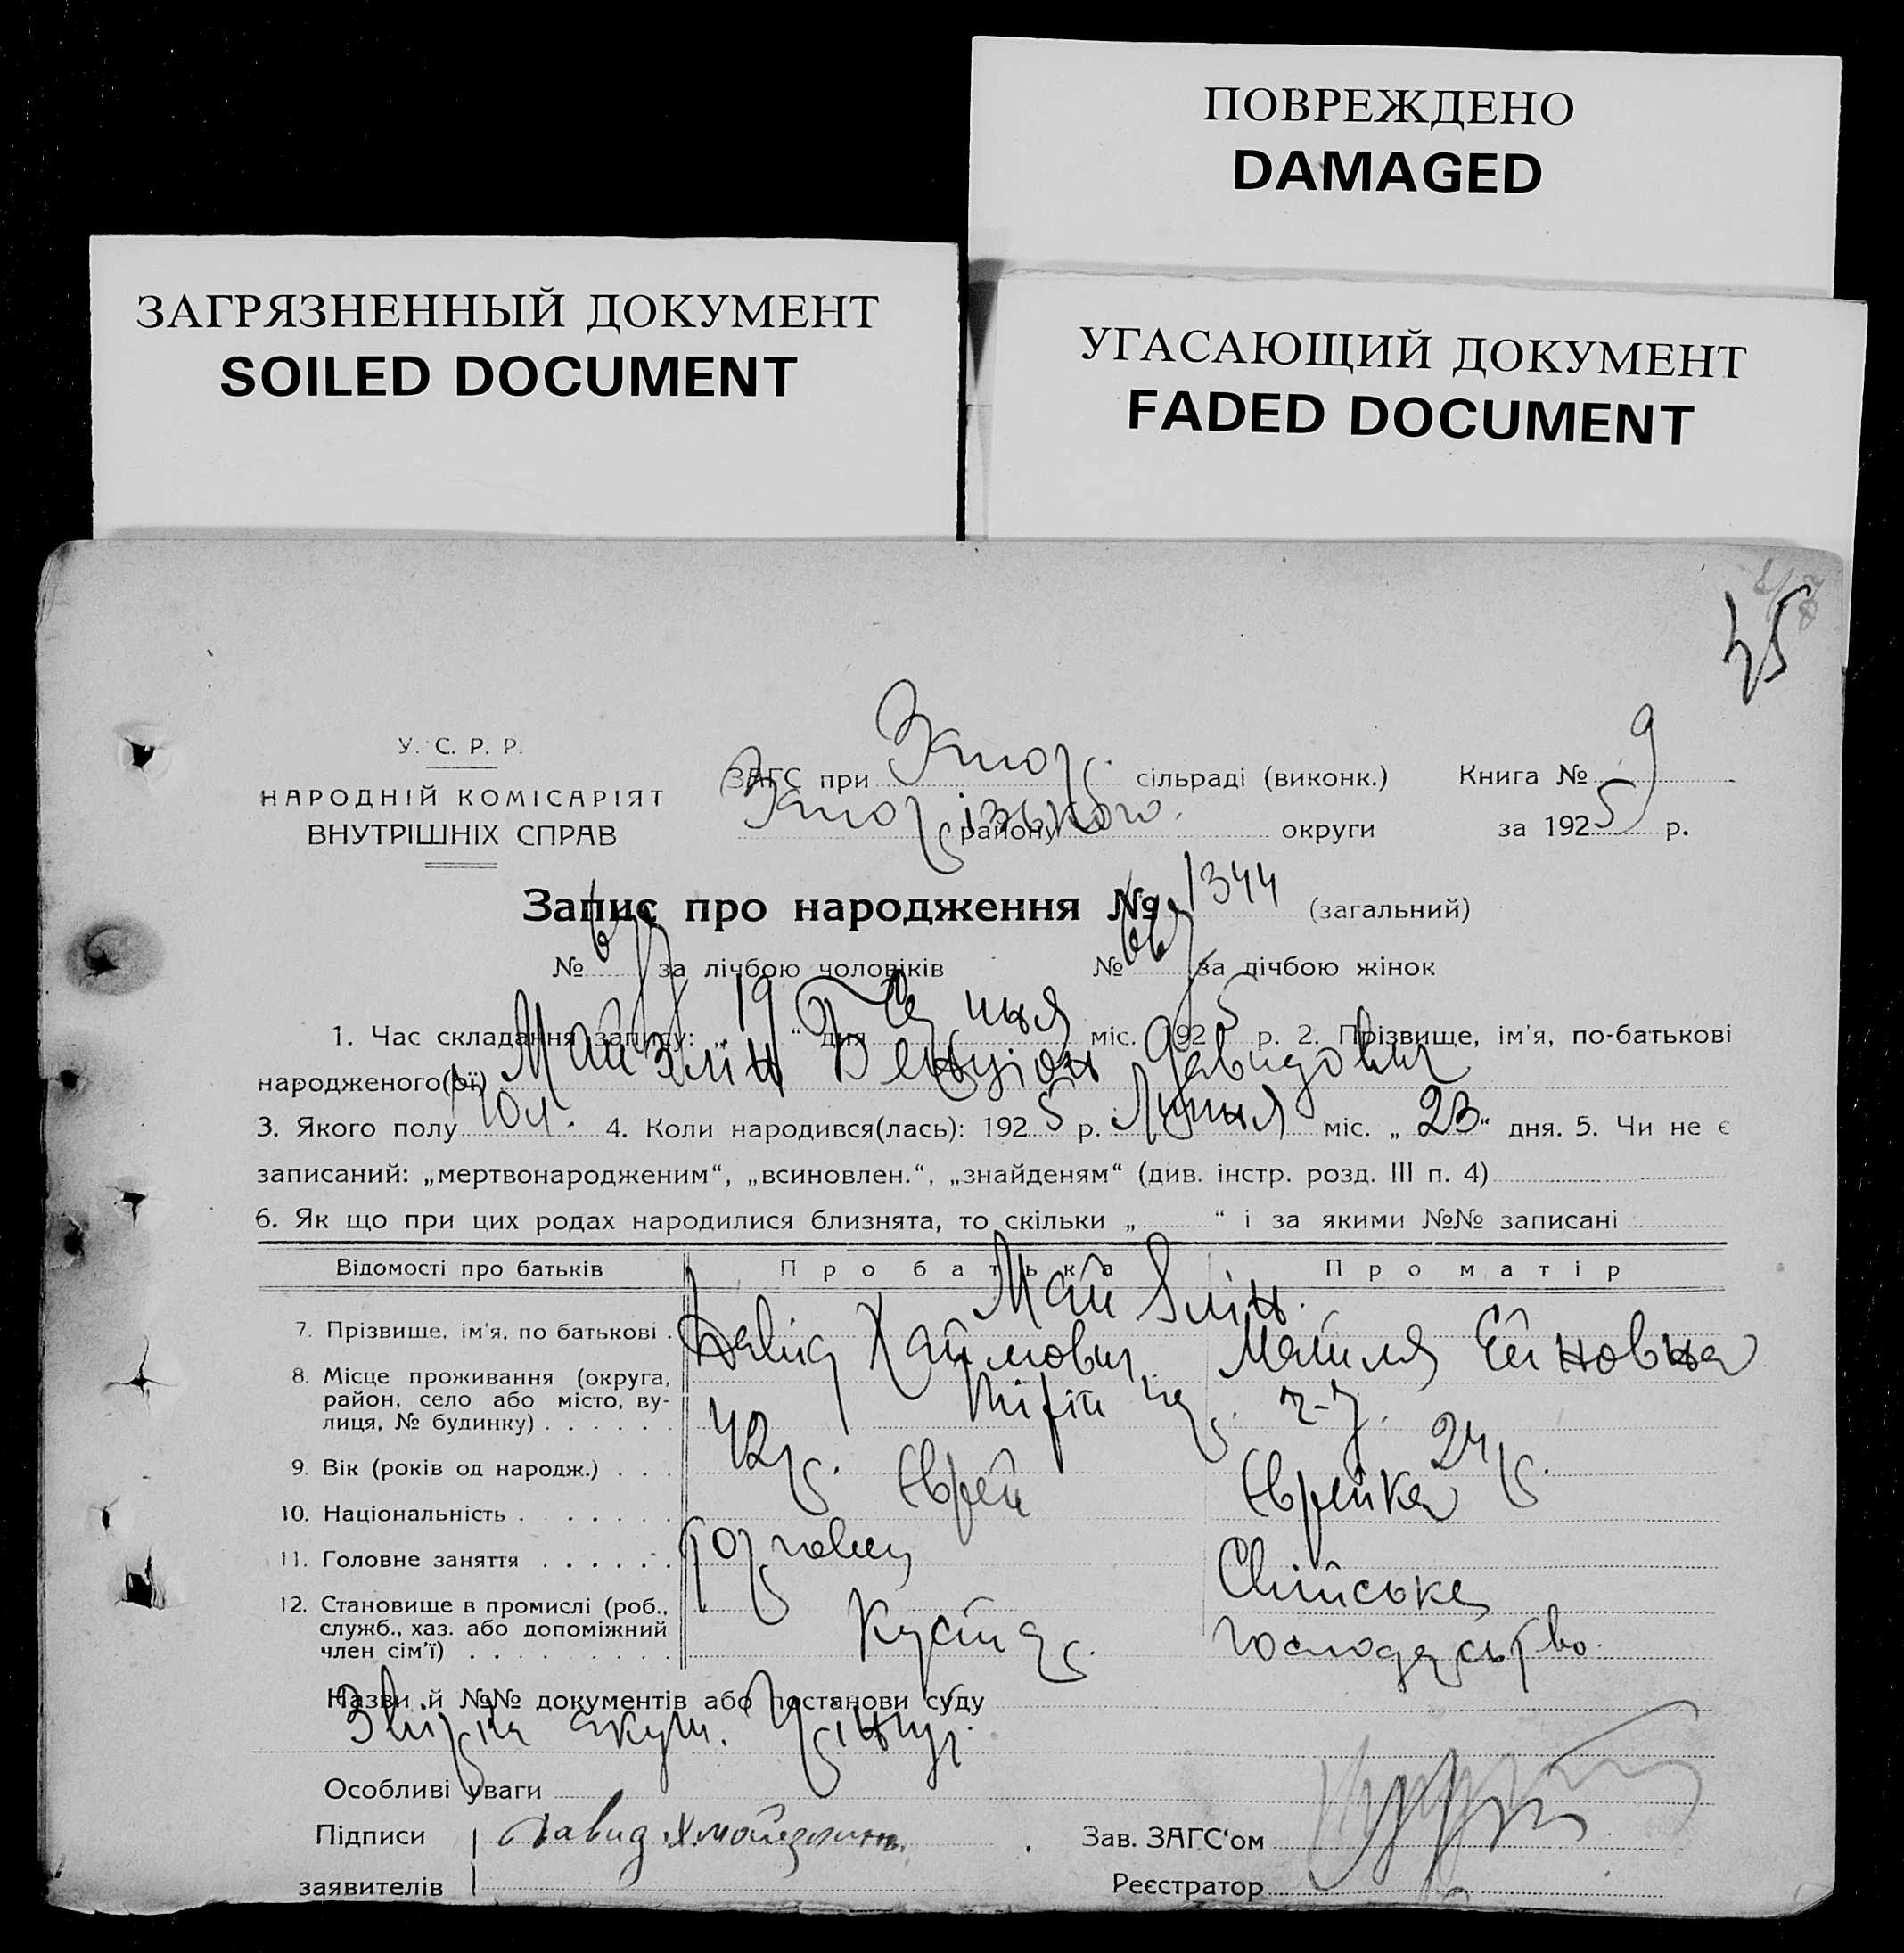 ПОВРЕЖДЕНО
DAMAGED
ЗАГРЯЗНЕННЫЙ ДОКУМЕНТ
SOILED DOCUMENT
УГАСАЮЩИЙ ДОКУМЕНТ
FADED DOCUMENT
45
У. С. Р. Р.
НАРОДНІЙ КОМІСАРІЯТ
ВНУТРІШНІХ СПРАВ
ЗАГС при Запор. сільраді (виконк.) Книга № 9
Запорізького району округи за 1925 р.
Запис про народження № 1344 (загальний)
№ 677 за лічбою чоловіків № 667 за лічбою жінок
1. Час складання запису: „19“ дня Серпня міс. 1925 р. 2. Прізвище, ім'я, по-батькові
народженого(ої) Майзлін Бенціон Давидович
3. Якого полу чол. 4. Коли народився(лась): 1925 р. Липня міс. „23“ дня. 5. Чи не є
записаний: „мертвонародженим“, „всиновлен.“, „знайденям“ (див. інстр. розд. III п. 4)
6. Як що при цих родах народилися близнята, то скільки „ “ і за якими №№ записані
Відомості про батьків Про батька Про матір
Майзлін.
7. Прізвище, ім'я, по батькові . Давид Хаймович Маніля Ейновна
8. Місце проживання (округа,
район, село або місто, ву-
лиця, № будинку) . . . . . .
9. Вік (років од народж.) . . . 42 р. 24 р.
10. Національність . . . . . . . Єврей Єврейка
11. Головне заняття . . . . . . Торговець Свійське
12. Становище в промислі (роб.,
служб., хаз. або допоміжний
член сім'ї) . . . . . . . . . Кустар. господарство.
Назви й №№ документів або постанови суду
Довідка акуш.
Особливі уваги
Підписи Давид Х Мойзлин Зав. ЗАГС'ом
заявителів Реєстратор